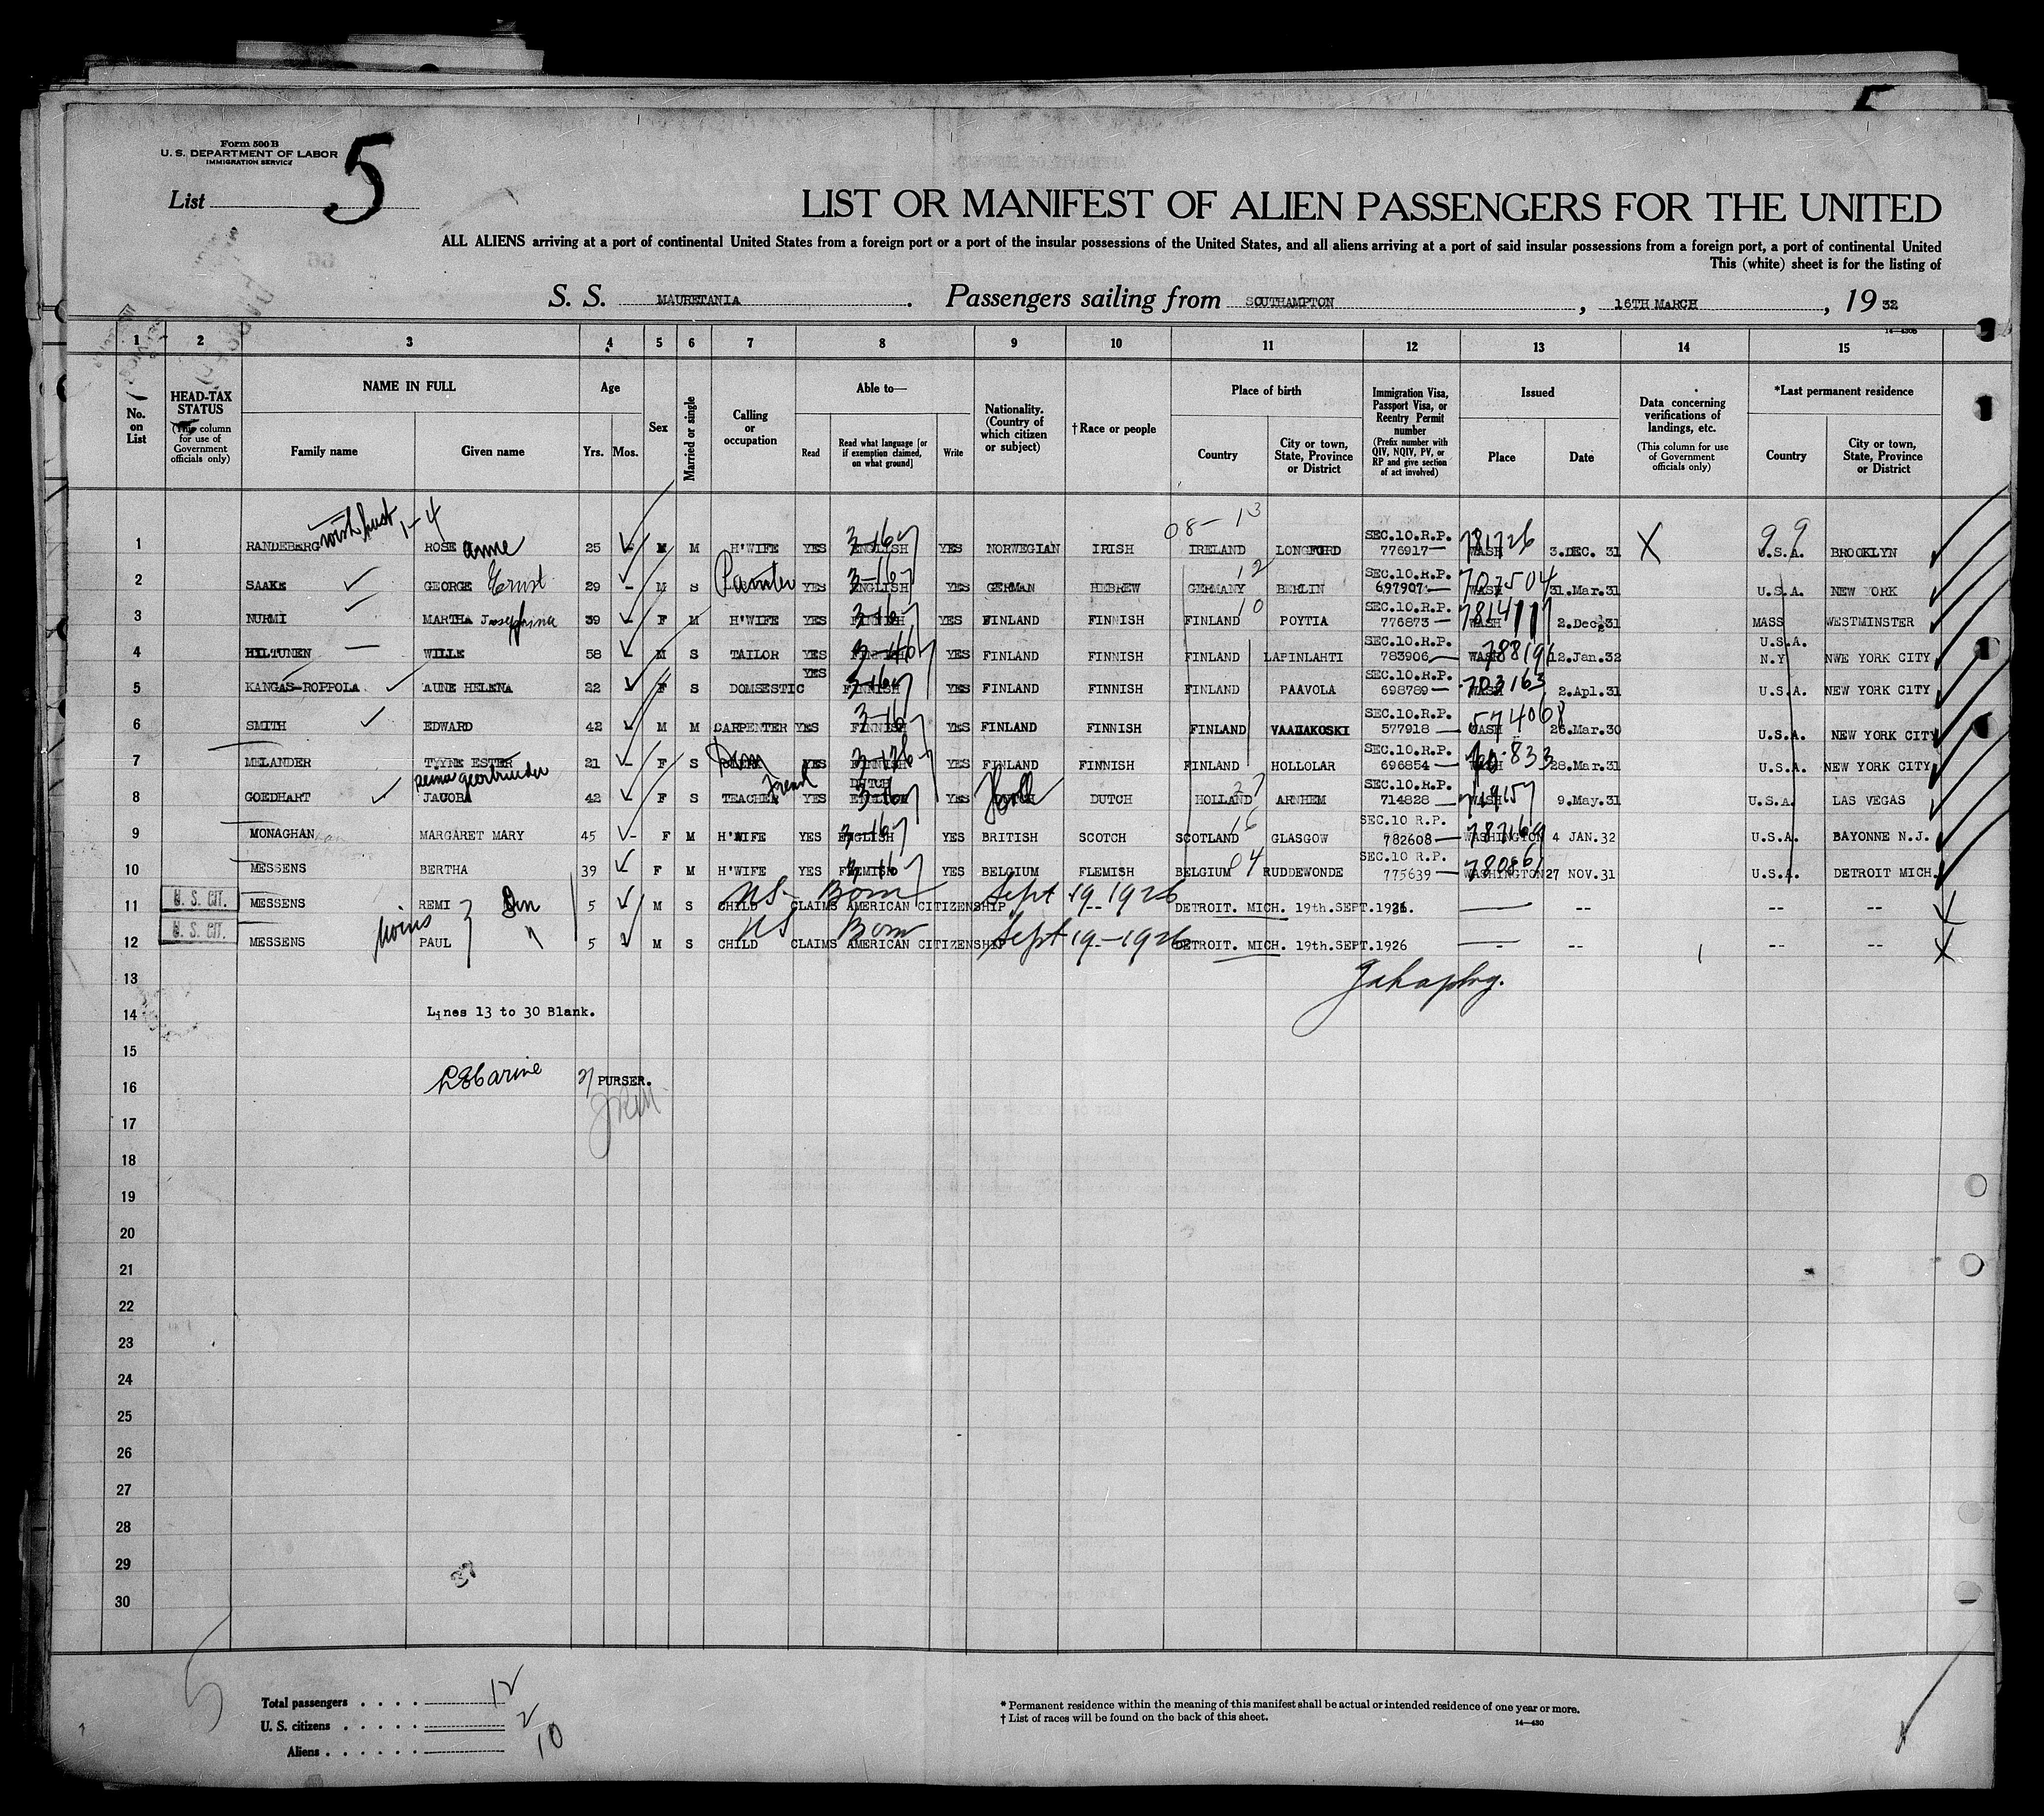 5
Form 500 B
U. S. DEPARTMENT OF LABOR
IMMIGRATION SERVICE
List 5
LIST OR MANIFEST OF ALIEN PASSENGERS FOR THE UNITED
ALL ALIENS arriving at a port of continental United States from a foreign port or a port of the insular possessions of the United States, and all aliens arriving at a port of said insular possessions from a foreign port, a port of continental United
This (white) sheet is for the listing of
S. S. MAURETANIA. Passengers sailing from SOUTHAMPTON, 16TH MARCH, 1932
1 2 3 4 5 6 7 8 9 10 11 12 13 14 15
No. on List
HEAD-TAX STATUS (This column for use of Government officials only)
NAME IN FULL Family name Given name
Age Yrs. Mos.
Sex
Married or single
Calling or occupation
Able to— Read Read what language [or if exemption claimed, on what ground] Write
Nationality. (Country of which citizen or subject)
†Race or people
Place of birth Country City or town, State, Province or District
Immigration Visa, Passport Visa, or Reentry Permit number (Prefix number with QIV, NQIV, PV, or RP and give section of act involved)
Issued Place Date
Data concerning verifications of landings, etc. (This column for use of Government officials only)
*Last permanent residence Country City or town, State, Province or District
1 RANDEBERG ROSE Anne 25 M H'WIFE YES ENGLISH YES NORWEGIAN IRISH IRELAND LONGFORD SEC.10.R.P. 776917 WASH 781726 3.DEC. 31 X U.S.A. BROOKLYN
2 SAAKE GEORGE Ernst 29 M S Painter YES ENGLISH YES GERMAN HEBREW GERMANY BERLIN SEC.10.R.P. 697907 WASH 707504 31.Mar.31 U.S.A. NEW YORK
3 NURMI MARTHA Josephina 39 F M H'WIFE YES FINNISH YES FINLAND FINNISH FINLAND POYTIA SEC.10.R.P. 776873 WASH 2.Dec.31 MASS WESTMINSTER
4 HILTUNEN WILLE 58 M S TAILOR YES FINNISH YES FINLAND FINNISH FINLAND LAPINLAHTI SEC.10.R.P. 783906 WASH 12.Jan.32 U.S.A. N.Y NWE YORK CITY
5 KANGAS-ROPPOLA AUNE HELENA 22 F S DOMSESTIC YES FINNISH YES FINLAND FINNISH FINLAND PAAVOLA SEC.10.R.P. 698789 WASH 703163 2.Apl.31 U.S.A. NEW YORK CITY
6 SMITH EDWARD 42 M M CARPENTER YES FINNISH YES FINLAND FINNISH FINLAND VAAJAKOSKI SEC.10.R.P. 577918 WASH 574068 26.Mar.30 U.S.A. NEW YORK CITY
7 MELANDER TYYNE ESTER 21 F S YES FINNISH YES FINLAND FINNISH FINLAND HOLLOLAR SEC.10.R.P. 696854 28.Mar.31 U.S.A. NEW YORK CITY
8 GOEDHART JACOBA 42 F S TEACHER YES DUTCH YES Holl DUTCH HOLLAND ARNHEM SEC.10.R.P. 714828 WASH 719157 9.May.31 U.S.A. LAS VEGAS
9 MONAGHAN MARGARET MARY 45 F M H'WIFE YES ENGLISH YES BRITISH SCOTCH SCOTLAND GLASGOW SEC.10 R.P. 782608 WASHINGTON 787169 4 JAN.32 U.S.A. BAYONNE N.J.
10 MESSENS BERTHA 39 F M H'WIFE YES FLEMISH YES BELGIUM FLEMISH BELGIUM RUDDEWONDE SEC.10 R.P. 775639 WASHINGTON 27 NOV.31 U.S.A. DETROIT MICH.
11 U. S. CIT. MESSENS REMI 5 M S CHILD CLAIMS AMERICAN CITIZENSHIP US Born Sept 19-1926 DETROIT. MICH. 19th.SEPT.1926. -- --
12 U. S. CIT. MESSENS PAUL 5 M S CHILD CLAIMS AMERICAN CITIZENSHIP US Born Sept 19-1926 DETROIT. MICH. 19th.SEPT.1926 -- --
13
14 Lines 13 to 30 Blank.
15
16 PURSER.
17
18
19
20
21
22
23
24
25
26
27
28
29
30
Total passengers 12
U. S. citizens 2
Aliens 10
* Permanent residence within the meaning of this manifest shall be actual or intended residence of one year or more.
† List of races will be found on the back of this sheet.
14—430